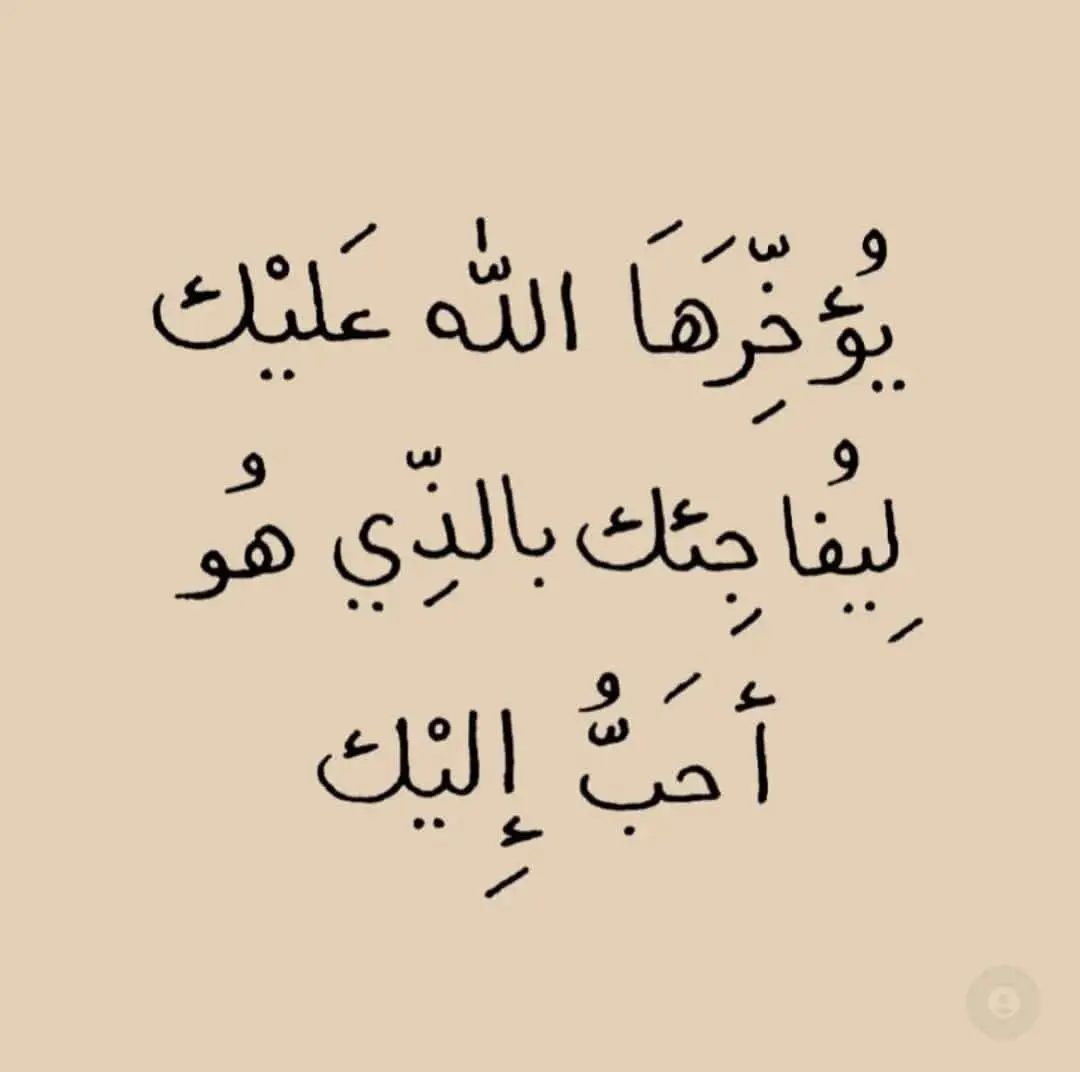 يُؤخِّرَهَا اللّٰه عَليْك
لِيفُاجِئك بالذِّي هُو
أحَبُّ إِليْك